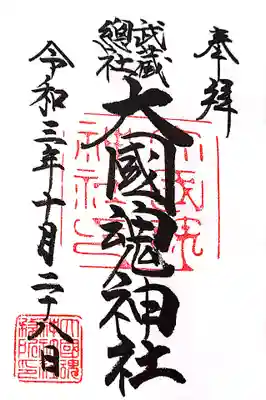 奉拝
武蔵
總社
大國魂神社
令和三年十月二十八日